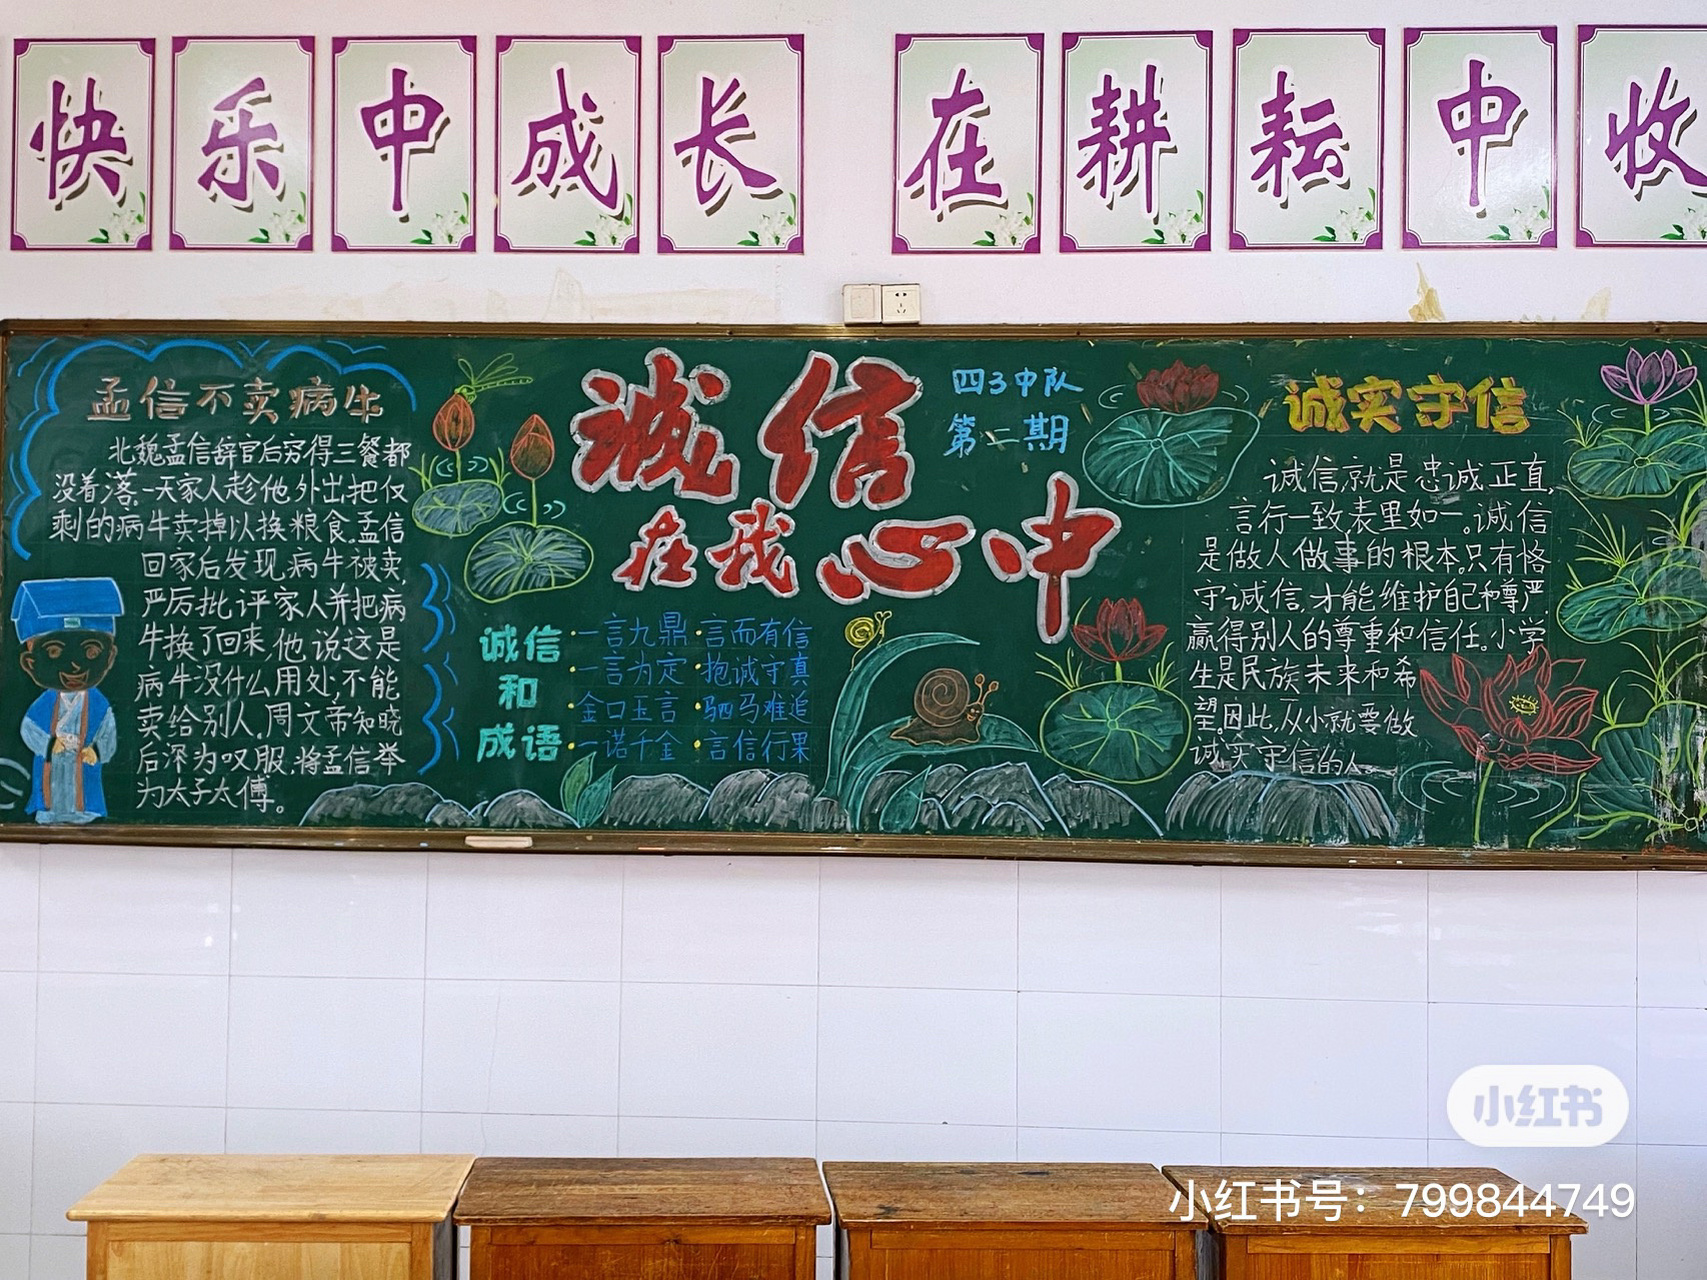 快乐中成长 在耕耘中收
孟信不卖病牛
北魏孟信辞官后穷得三餐都
没着落,一天家人趁他外出,把仅
剩的病牛卖掉以换粮食。孟信
回家后发现病牛被卖,
严厉批评家人并把病
牛换了回来,他说这是
病牛没什么用处,不能
卖给别人。周文帝知晓
后深为叹服,将孟信举
为太子太傅。
诚信
在我心中
四3中队
第二期
诚信
和
成语
·一言九鼎·言而有信
·一言为定·抱诚守真
·金口玉言·驷马难追
·一诺千金·言信行果
诚实守信
诚信,就是忠诚正直,
言行一致表里如一。诚信
是做人做事的根本。只有恪
守诚信,才能维护自己和尊严
赢得别人的尊重和信任。小学
生是民族未来和希
望。因此,从小就要做
诚实守信的人。
小红书
小红书号：799844749